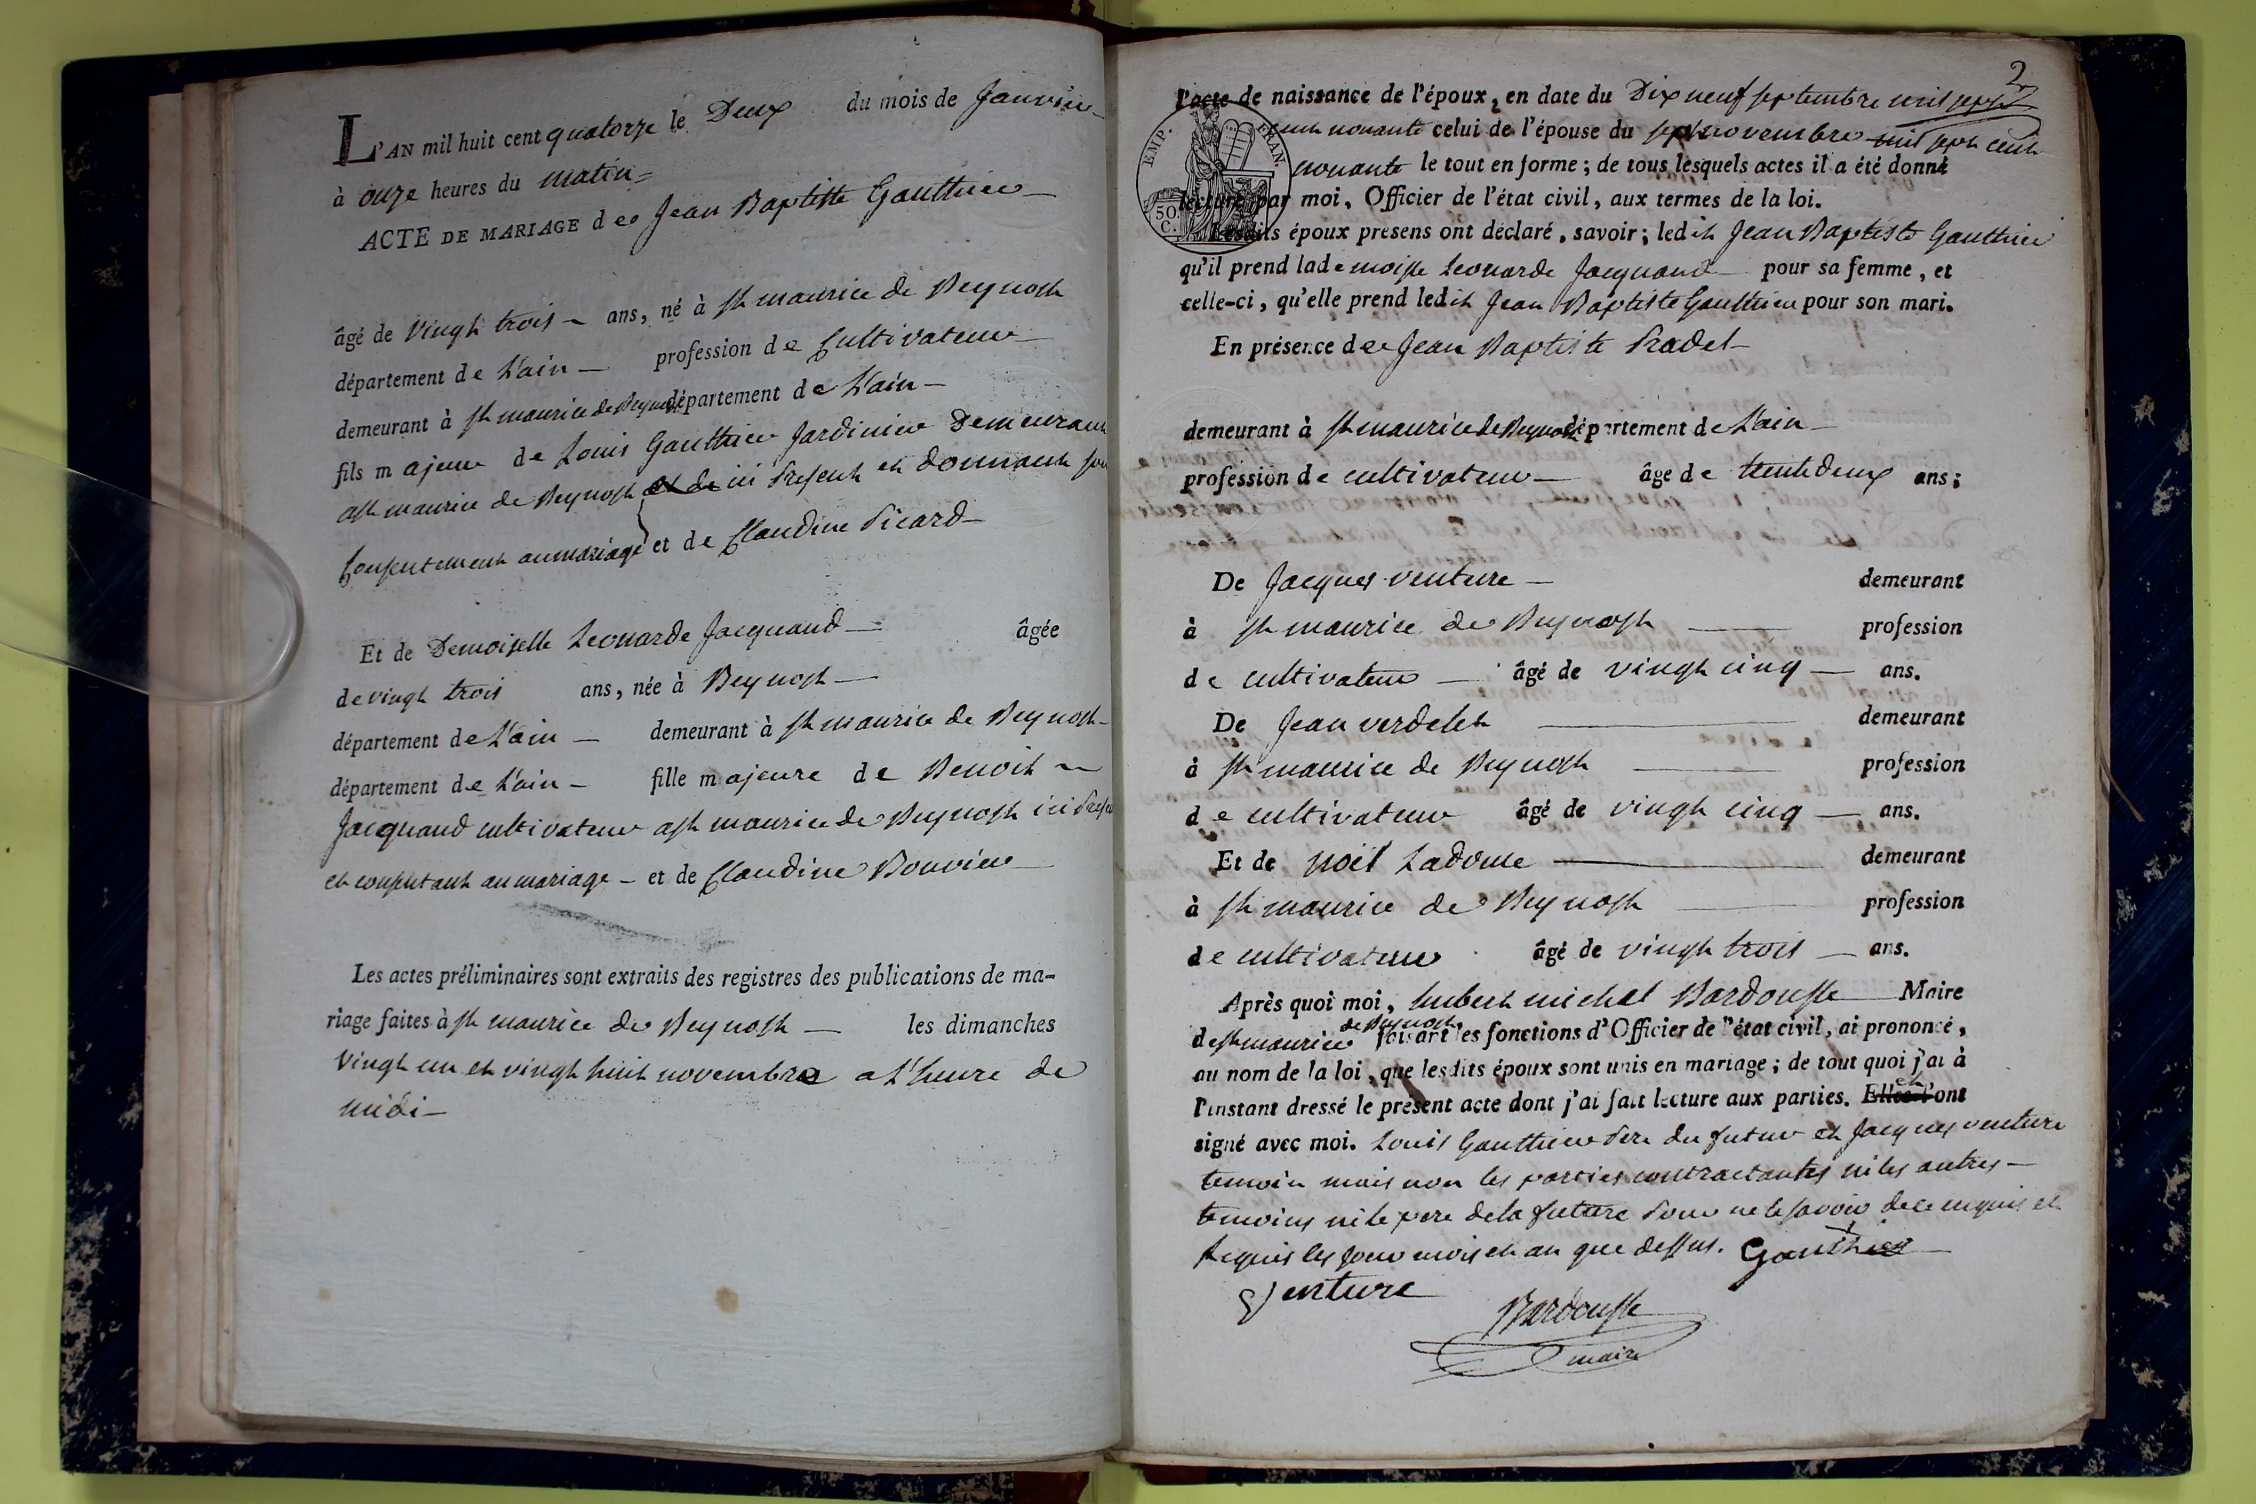 L'AN mil huit cent quatorze le Deux du mois de Janvier
à onze heures du matin
ACTE DE MARIAGE de Jean Baptiste Gauthier
âgé de vingt trois ans, né à St maurice de Beynost
département de L'ain profession de Cultivateur
demeurant à St maurice de Beynost département de L'ain
fils majeur de Louis Gauthier Jardinier Demeurant
a St maurice de Beynost et de ici Present et donnant son
Consentement au mariage et de Claudine Picard
Et de Demoiselle Leonarde Jacquand âgée
de vingt trois ans, née à Beynost
département de L'ain demeurant à St maurice de Beynost
département de L'ain fille majeure de Benoit
Jacquand cultivateur a St maurice de Beynost ici Present
et consentant au mariage et de Claudine Bouvier
Les actes préliminaires sont extraits des registres des publications de ma-
riage faites à St maurice de Beynost les dimanches
vingt un et vingt huit novembre a L'heure de
midi
2
l'acte de naissance de l'époux, en date du Dix neuf septembre mil sept
cent nonante celui de l'épouse du sept novembre mil sept cent
nonante le tout en forme; de tous lesquels actes il a été donné
lecture par moi, Officier de l'état civil, aux termes de la loi.
EMP. FRAN.
50 C.
Lesdits époux présens ont déclaré, savoir; ledit Jean Baptiste Gauthier
qu'il prend lademoiselle Leonarde Jacquand pour sa femme, et
celle-ci, qu'elle prend ledit Jean Baptiste Gauthier pour son mari.
En présence de Jean Baptiste Pradel
demeurant à St maurice de Beynost département de L'ain
profession de cultivateur âge de trente deux ans;
De Jacques venture demeurant
à St maurice de Beynost profession
de cultivateur âgé de vingt cinq ans.
De Jean verdelet demeurant
à St maurice de Beynost profession
de cultivateur âgé de vingt cinq ans.
Et de noël Ladouce demeurant
à St maurice de Beynost profession
de cultivateur âgé de vingt trois ans.
Après quoi moi, hubert michel Bardousse Maire
de St maurice de Beynost faisant les fonctions d'Officier de l'état civil, ai prononcé,
au nom de la loi, que lesdits époux sont unis en mariage; de tout quoi j'ai à
l'instant dressé le présent acte dont j'ai fait lecture aux parties. Elles l'ont et
signé avec moi. Louis Gauthier Pere du futur et Jacques venture
temoin mais non les parties contractantes ni les autres
temoins ni le pere de la future Pour ne le savoir de ce enquis et
Requis les jour mois et an que dessus. Gauthier
Venture
Bardousse
maire